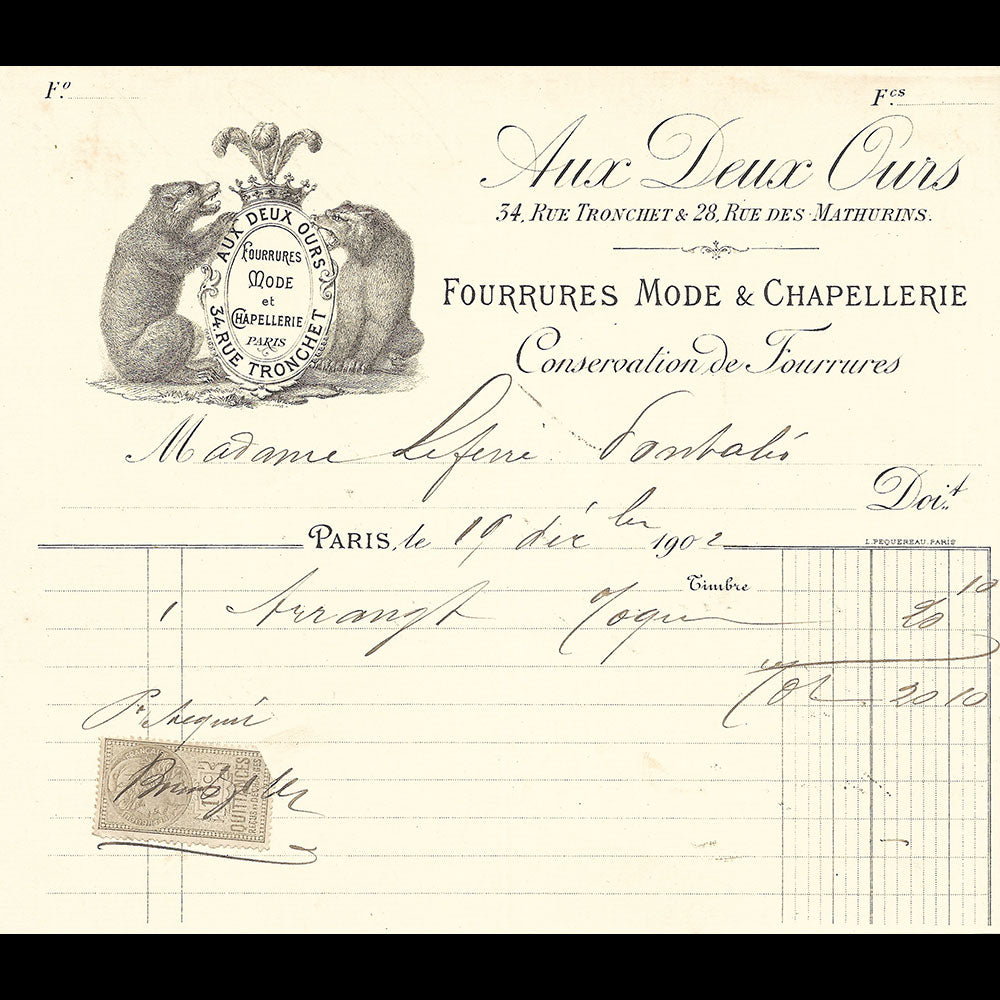 Fº
Fcs
AUX DEUX OURS
FOURRURES
MODE
et
CHAPELLERIE
PARIS
34, RUE TRONCHET
Aux Deux Ours
34, RUE TRONCHET & 28, RUE DES MATHURINS.
FOURRURES MODE & CHAPELLERIE
Conservation de Fourrures
Madame
Doit
PARIS, le 19 déc bre 1902
L. PEQUEREAU. PARIS
Timbre 10
1 Arrangt Toque 20
Tot 20 10
Pr
QUITTANCES